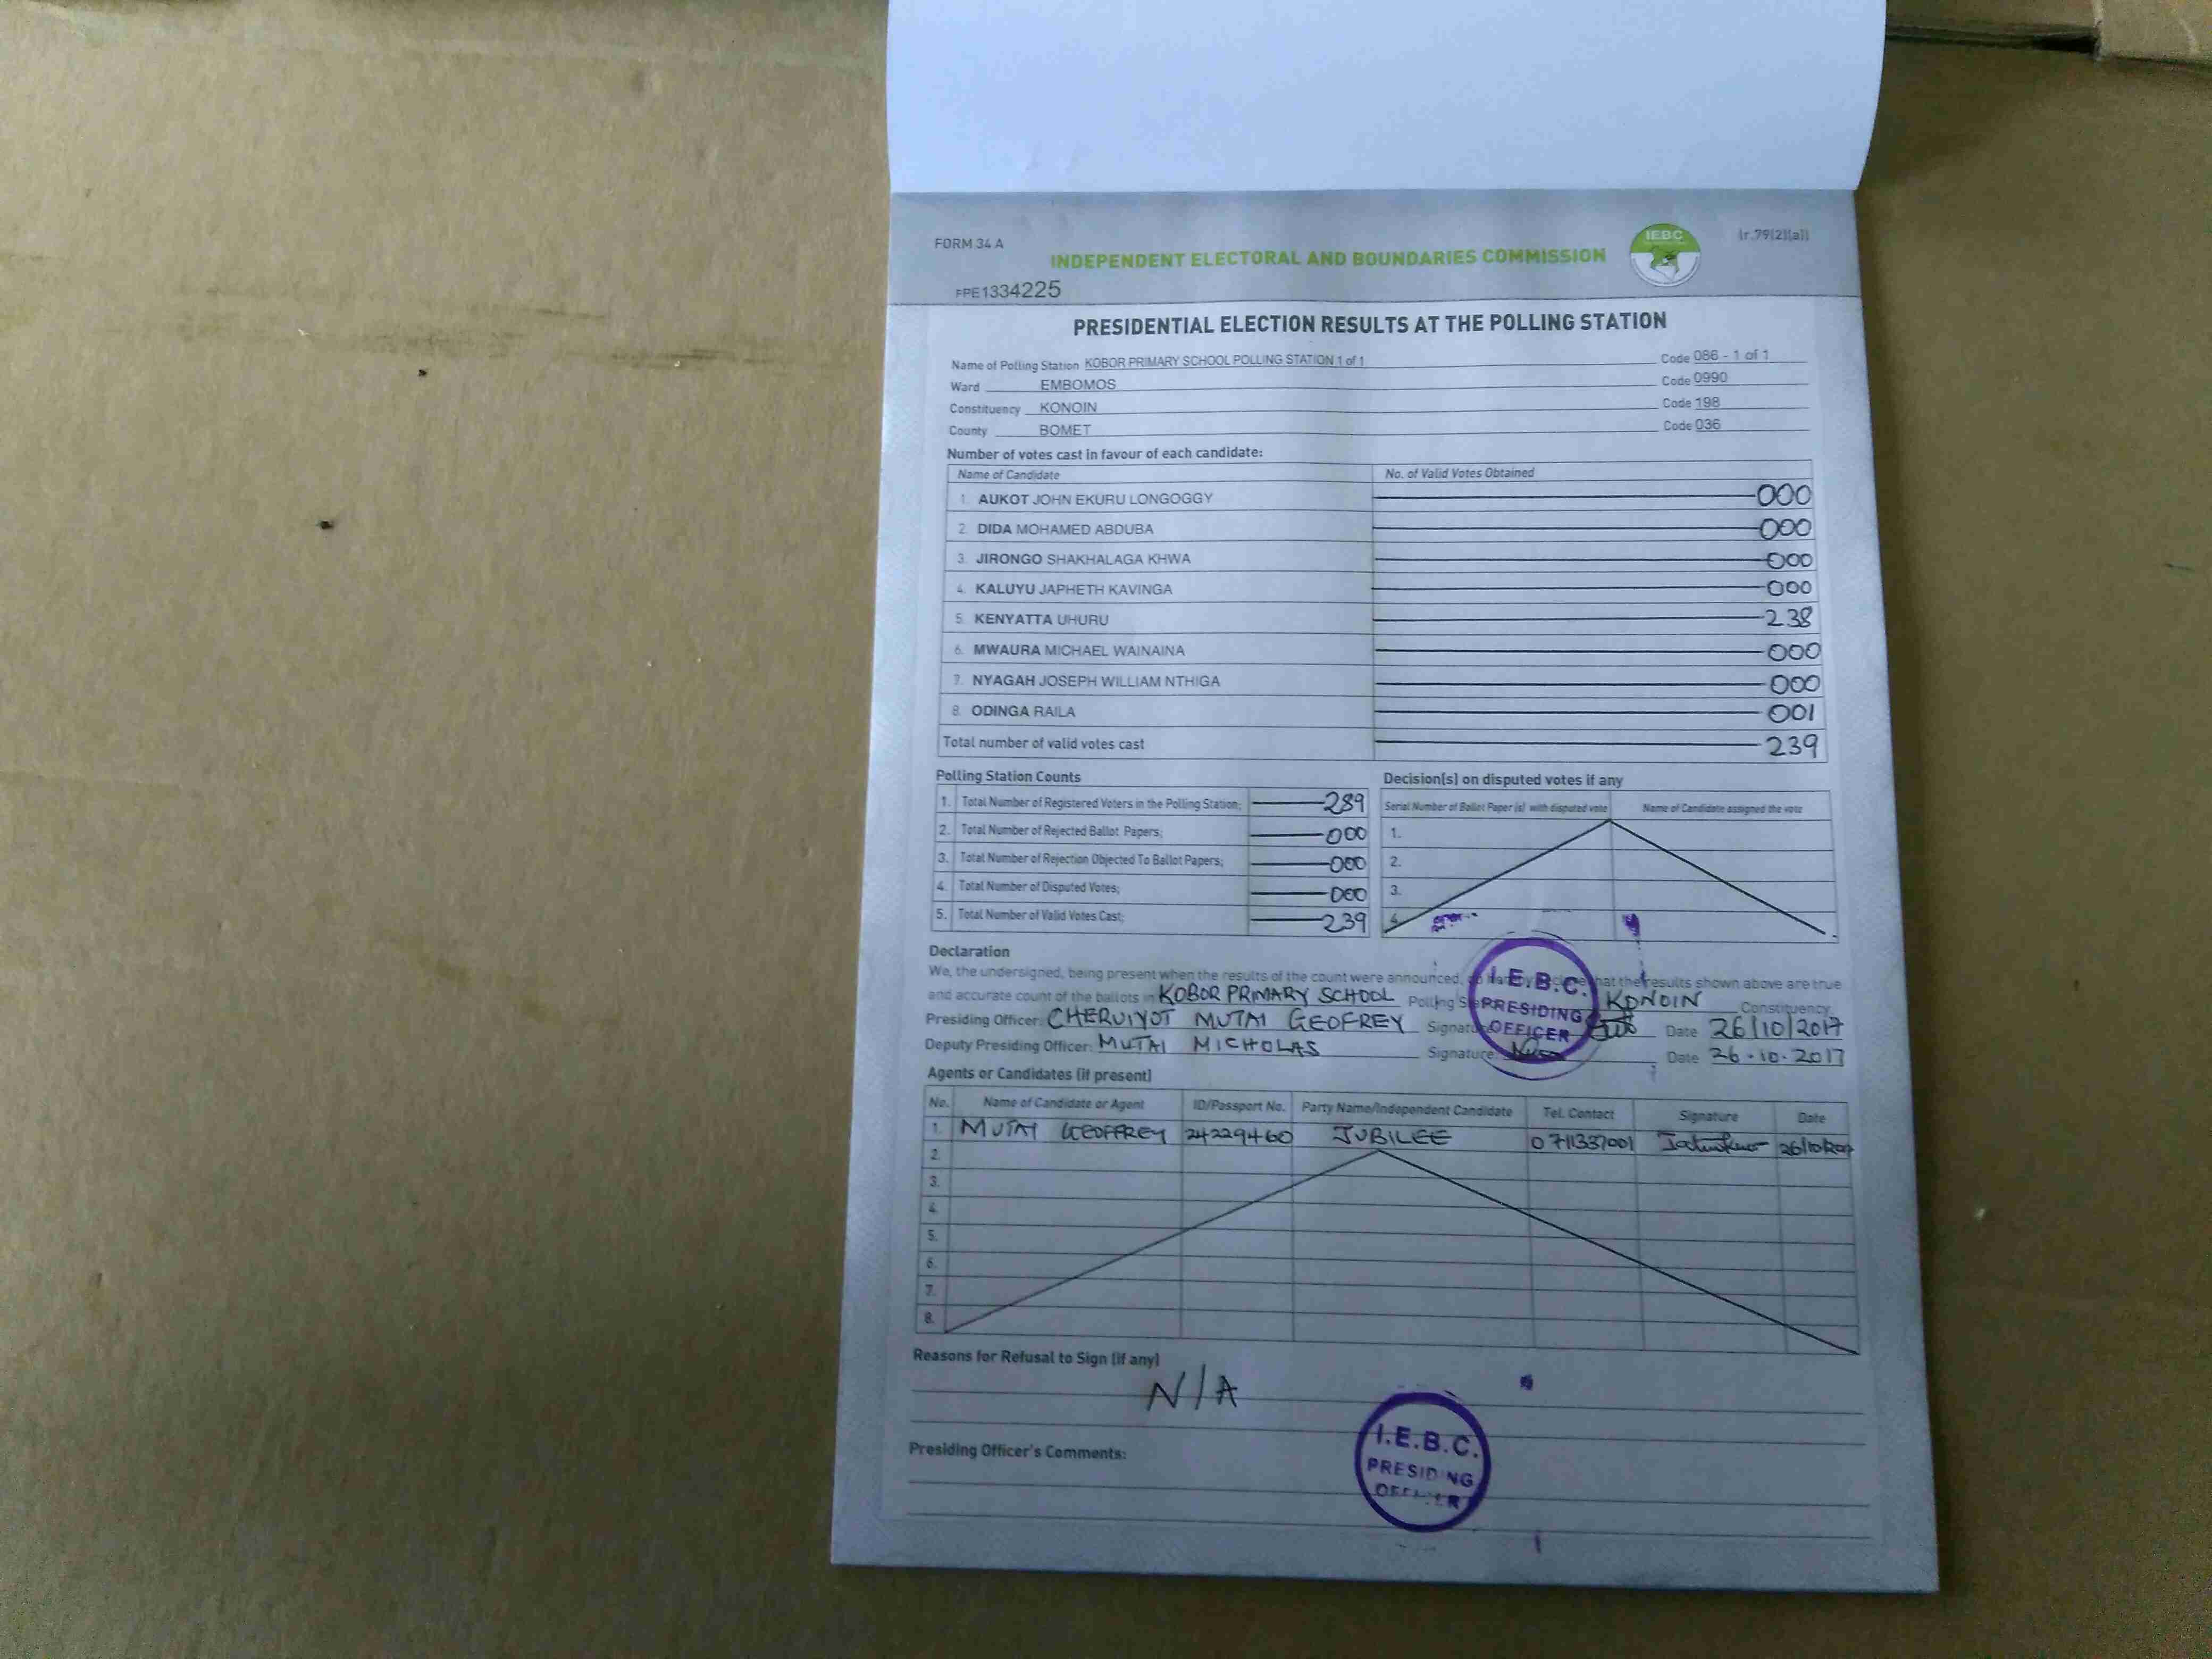 FORM 34 A
INDEPENDENT ELECTORAL AND BOUNDARIES COMMISSION
IEBC
(r.79(2)(a))
FPE1334225
PRESIDENTIAL ELECTION RESULTS AT THE POLLING STATION
Name of Polling Station KOBOR PRIMARY SCHOOL POLLING STATION 1 of 1 Code 086 - 1 of 1
Ward EMBOMOS Code 0990
Constituency KONOIN Code 198
County BOMET Code 036
Number of votes cast in favour of each candidate:
Name of Candidate No. of Valid Votes Obtained
1. AUKOT JOHN EKURU LONGOGGY 000
2. DIDA MOHAMED ABDUBA 000
3. JIRONGO SHAKHALAGA KHWA 000
4. KALUYU JAPHETH KAVINGA 000
5. KENYATTA UHURU 238
6. MWAURA MICHAEL WAINAINA 000
7. NYAGAH JOSEPH WILLIAM NTHIGA 000
8. ODINGA RAILA 001
Total number of valid votes cast 239
Polling Station Counts
1. Total Number of Registered Voters in the Polling Station; 289
2. Total Number of Rejected Ballot Papers; 000
3. Total Number of Rejection Objected To Ballot Papers; 000
4. Total Number of Disputed Votes; 000
5. Total Number of Valid Votes Cast; 239
Decision(s) on disputed votes if any
Serial Number of Ballot Paper (s) with disputed vote Name of Candidate assigned the vote
1.
2.
3.
4.
Declaration
We, the undersigned, being present when the results of the count were announced, that the results shown above are true
and accurate count of the ballots in KOBOR PRIMARY SCHOOL Polling KONOIN Constituency
Presiding Officer: CHERUIYOT MUTAI GEOFREY Signature Date 26/10/2017
Deputy Presiding Officer: MUTAI MICHOLAS Signature: Date 26.10.2017
I.E.B.C.
PRESIDING
OFFICER
Agents or Candidates (if present)
No. Name of Candidate or Agent ID/Passport No. Party Name/Independent Candidate Tel. Contact Signature Date
1. MUTAI GEOFFREY 24229460 JUBILEE 0711337001 26/10/2017
2.
3.
4.
5.
6.
7.
8.
Reasons for Refusal to Sign (if any)
N/A
Presiding Officer's Comments:
I.E.B.C.
PRESIDING
OFFICER